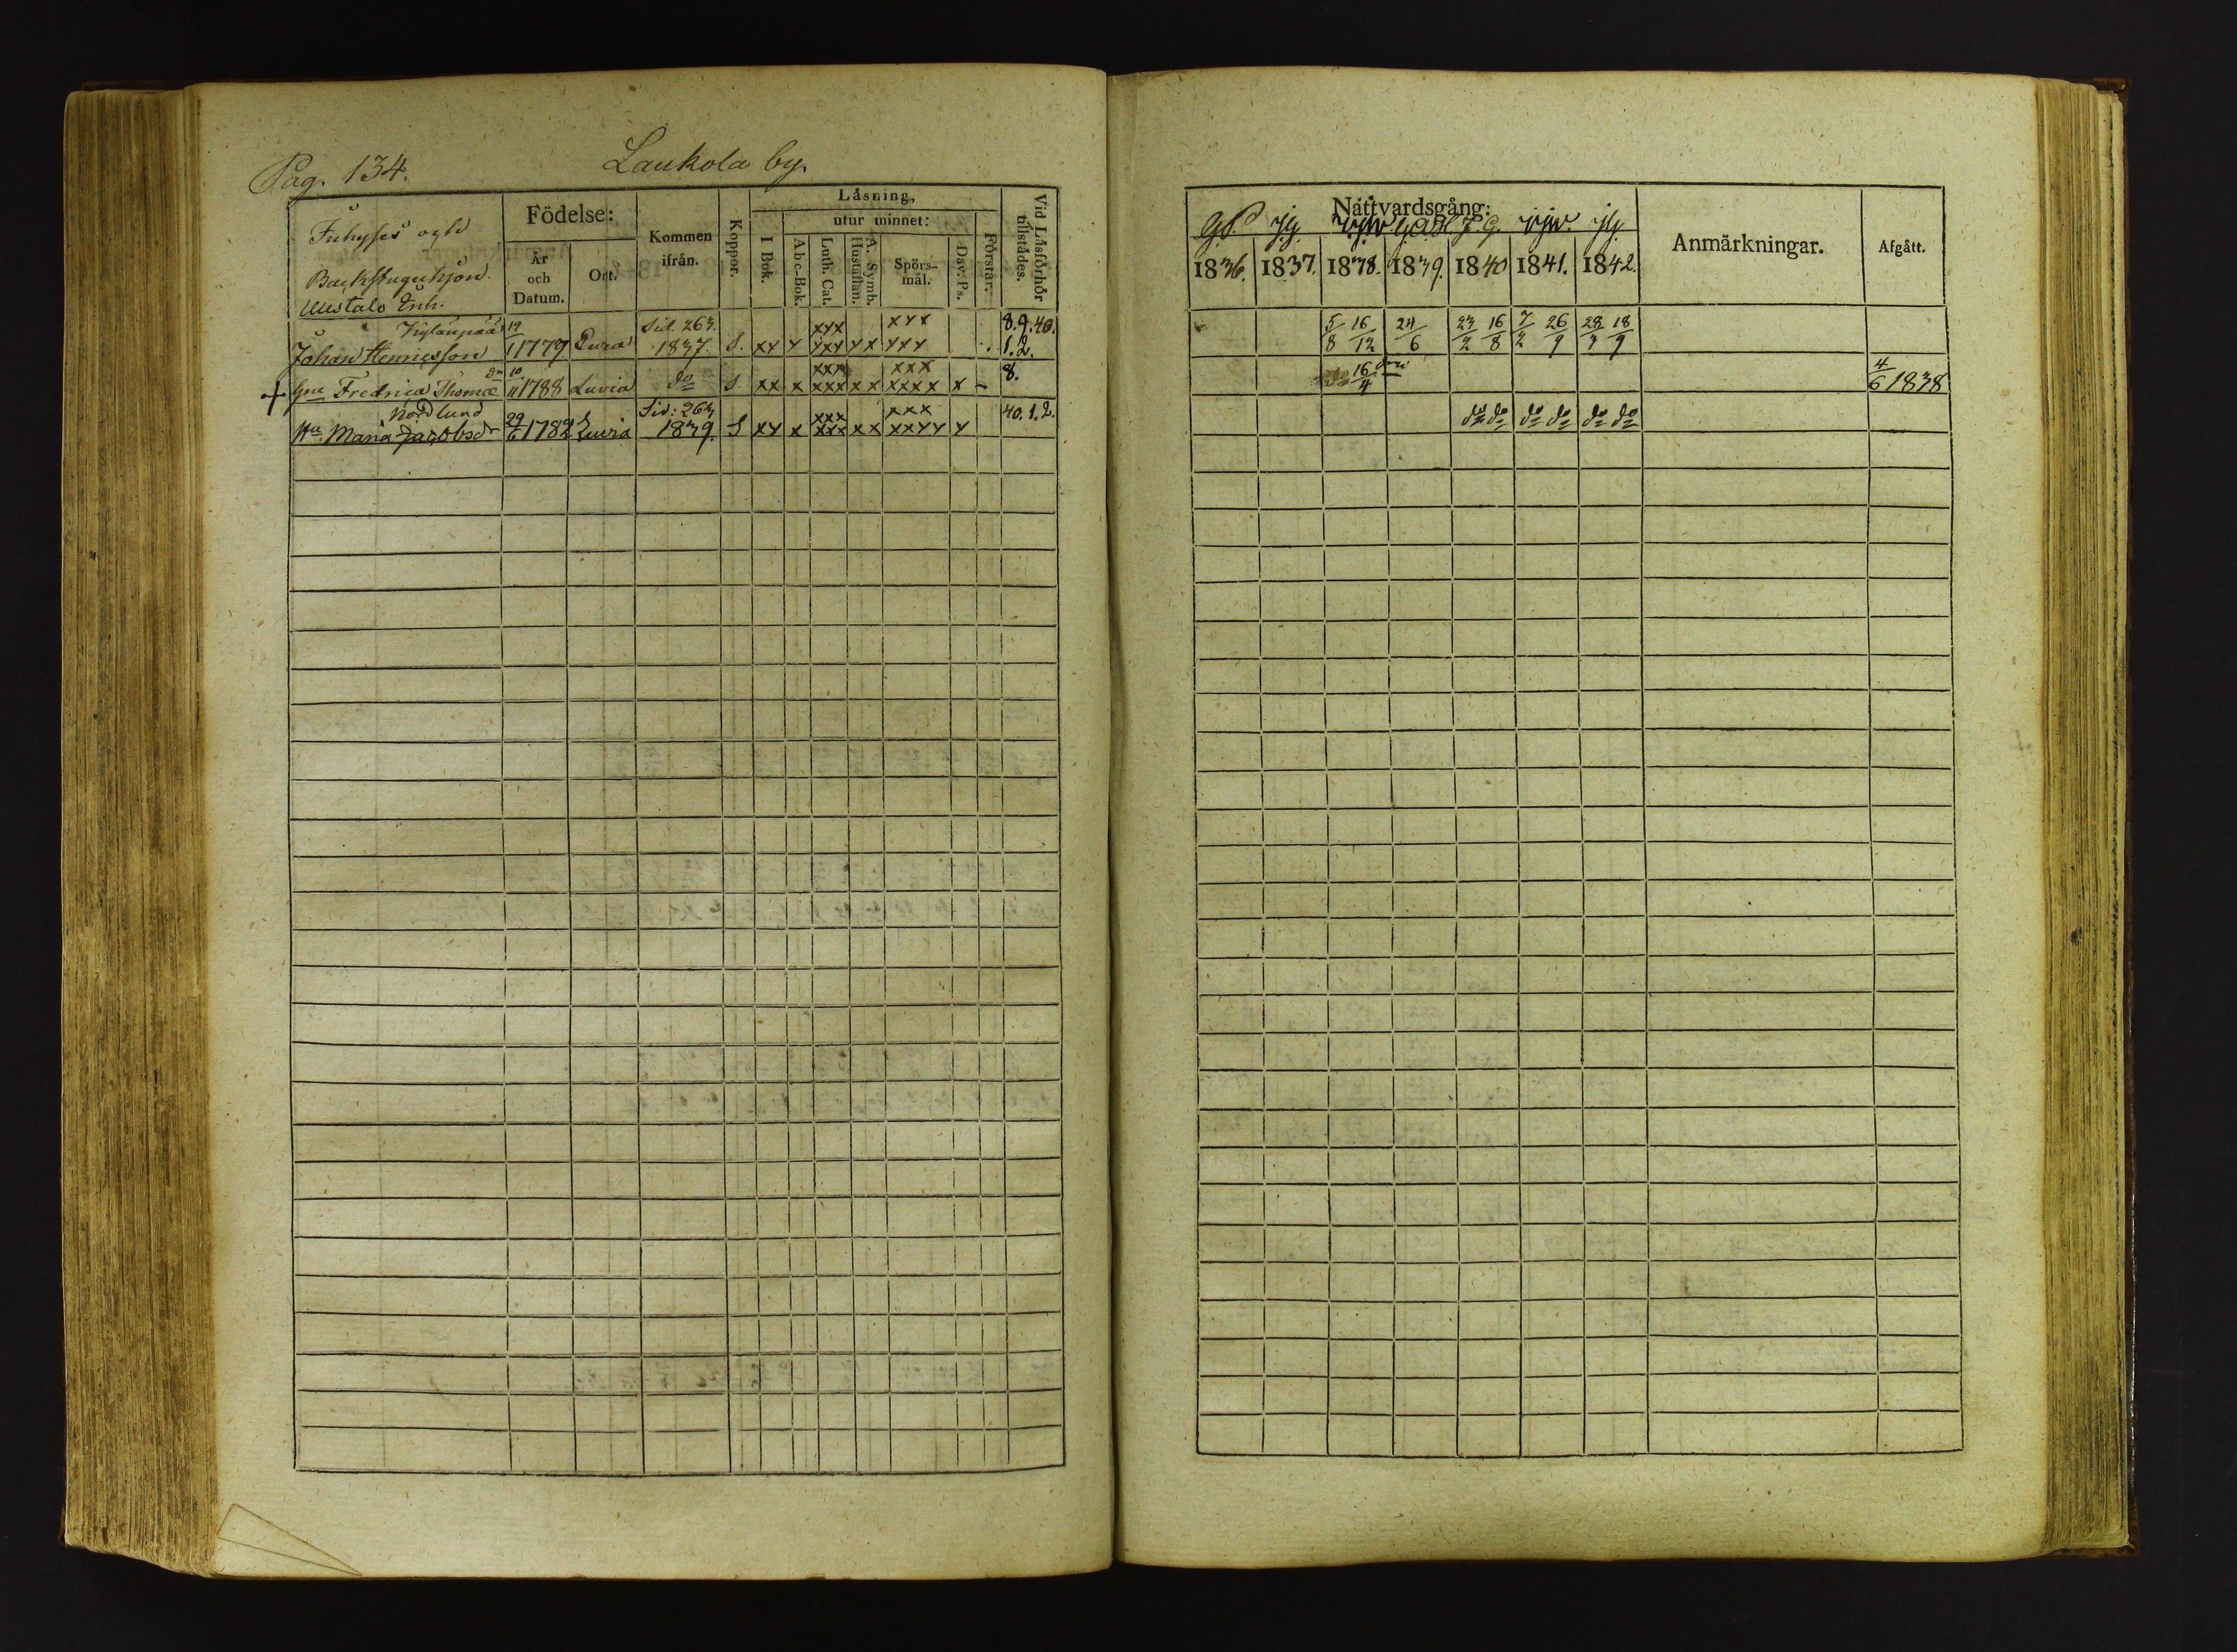 Pag. 134. Laukola by.
Inhyses och
Backstuguhjon.
Uustalo Enh.
Födelse:
År och Datum.
Ort.
Kommen ifrån.
Koppor.
Läsning,
utur minnet:
I Bok.
Abc-Bok.
Luth. Cat.
A. Symb. Hustaflan.
Spörs-mål.
Dav. Ps.
Förstår.
Vid Läsförhör tillstädes.
19 Sid. 263. xxx xxx 8.9.40.
Johan Henricsson 11 1779 Eura 1837. S. xx x xxx xx xxx 1.2.
dr 10 xxx xxx 8.
+ Hu Fredrica Thomæ 11 1788 Luvia do S. xx x xxx xx xxxx x -
Nordlund 29 Sid: 263 xxx xxx 40.1.2.
Hu Maria Jacobsdr 6 1782 Luvia 1839. S xx x xxx xx xxxx x
Nattvardsgång:
1836. 1837. 1838. 1839. 1840 1841. 1842.
Anmärkningar.
Afgått.
5/8 16/12 24/6 23/2 16/8 7/2 26/9 28/3 18/9
16/4 4/6 1838
do do do do do do